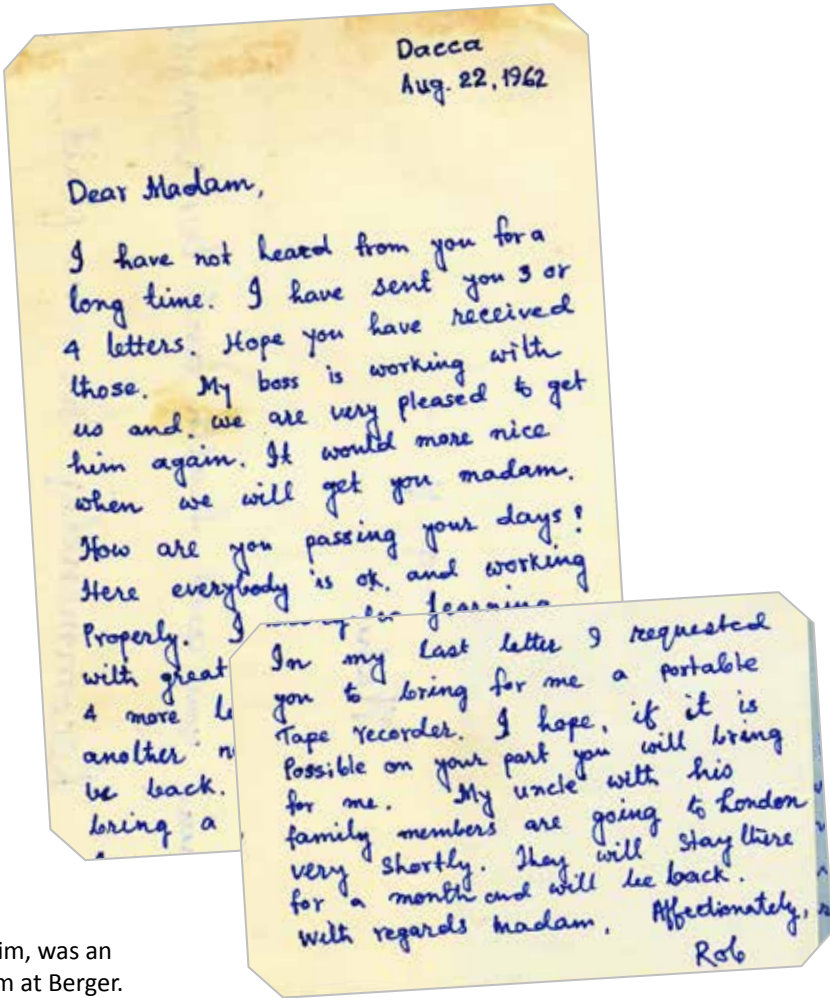 Dacca
Aug. 22, 1962
Dear Madam,
I have not heard from you for a
long time. I have sent you 3 or
4 letters. Hope you have received
those. My boss is working with
us and, we are very pleased to get
him again. It would more nice
when we will get you madam.
How are you passing your days?
Here everybody is ok. and working
Properly. I learning
with great
4 more
another
be back.
bring a
In my last letter I requested
you to bring for me a portable
Tape recorder. I hope, if it is
Possible on your part you will bring
for me. My uncle with his
family members are going to London
very shortly. They will stay there
for a month and will be back.
with regards madam. Affectionately,
Rob
im, was an
m at Berger.